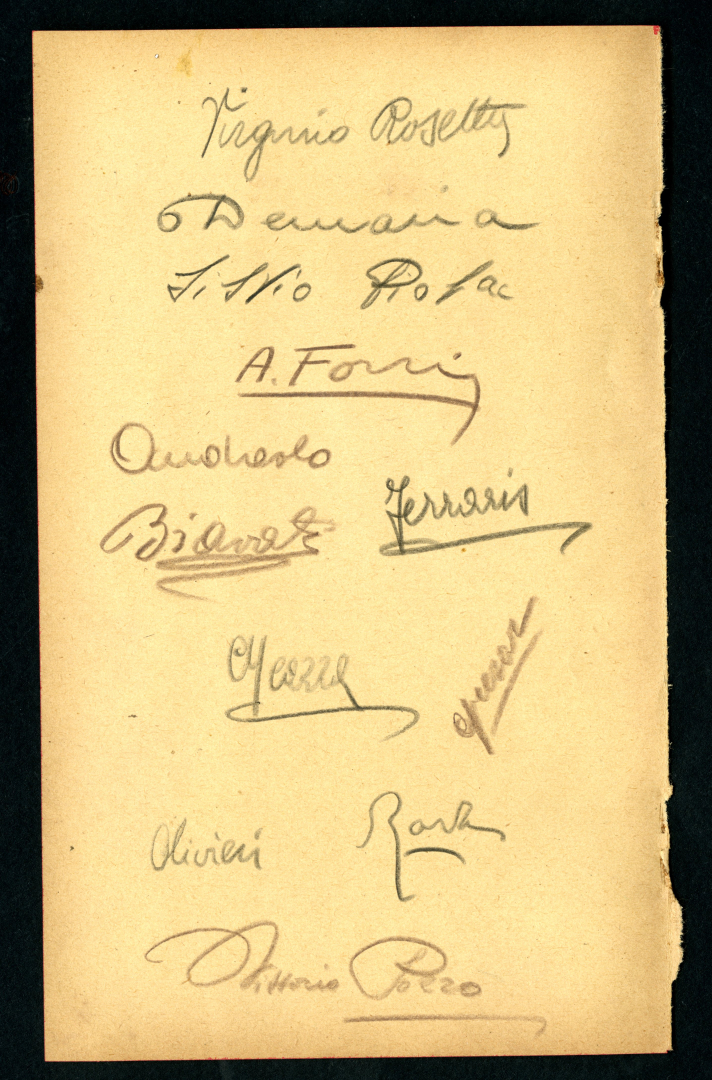 Virginio Rosetta
Demaria
Silvio Piola
A. Forni
Andreolo
Biavati
Ferraris
Meazza
Olivieri
Rava
Vittorio Pozzo